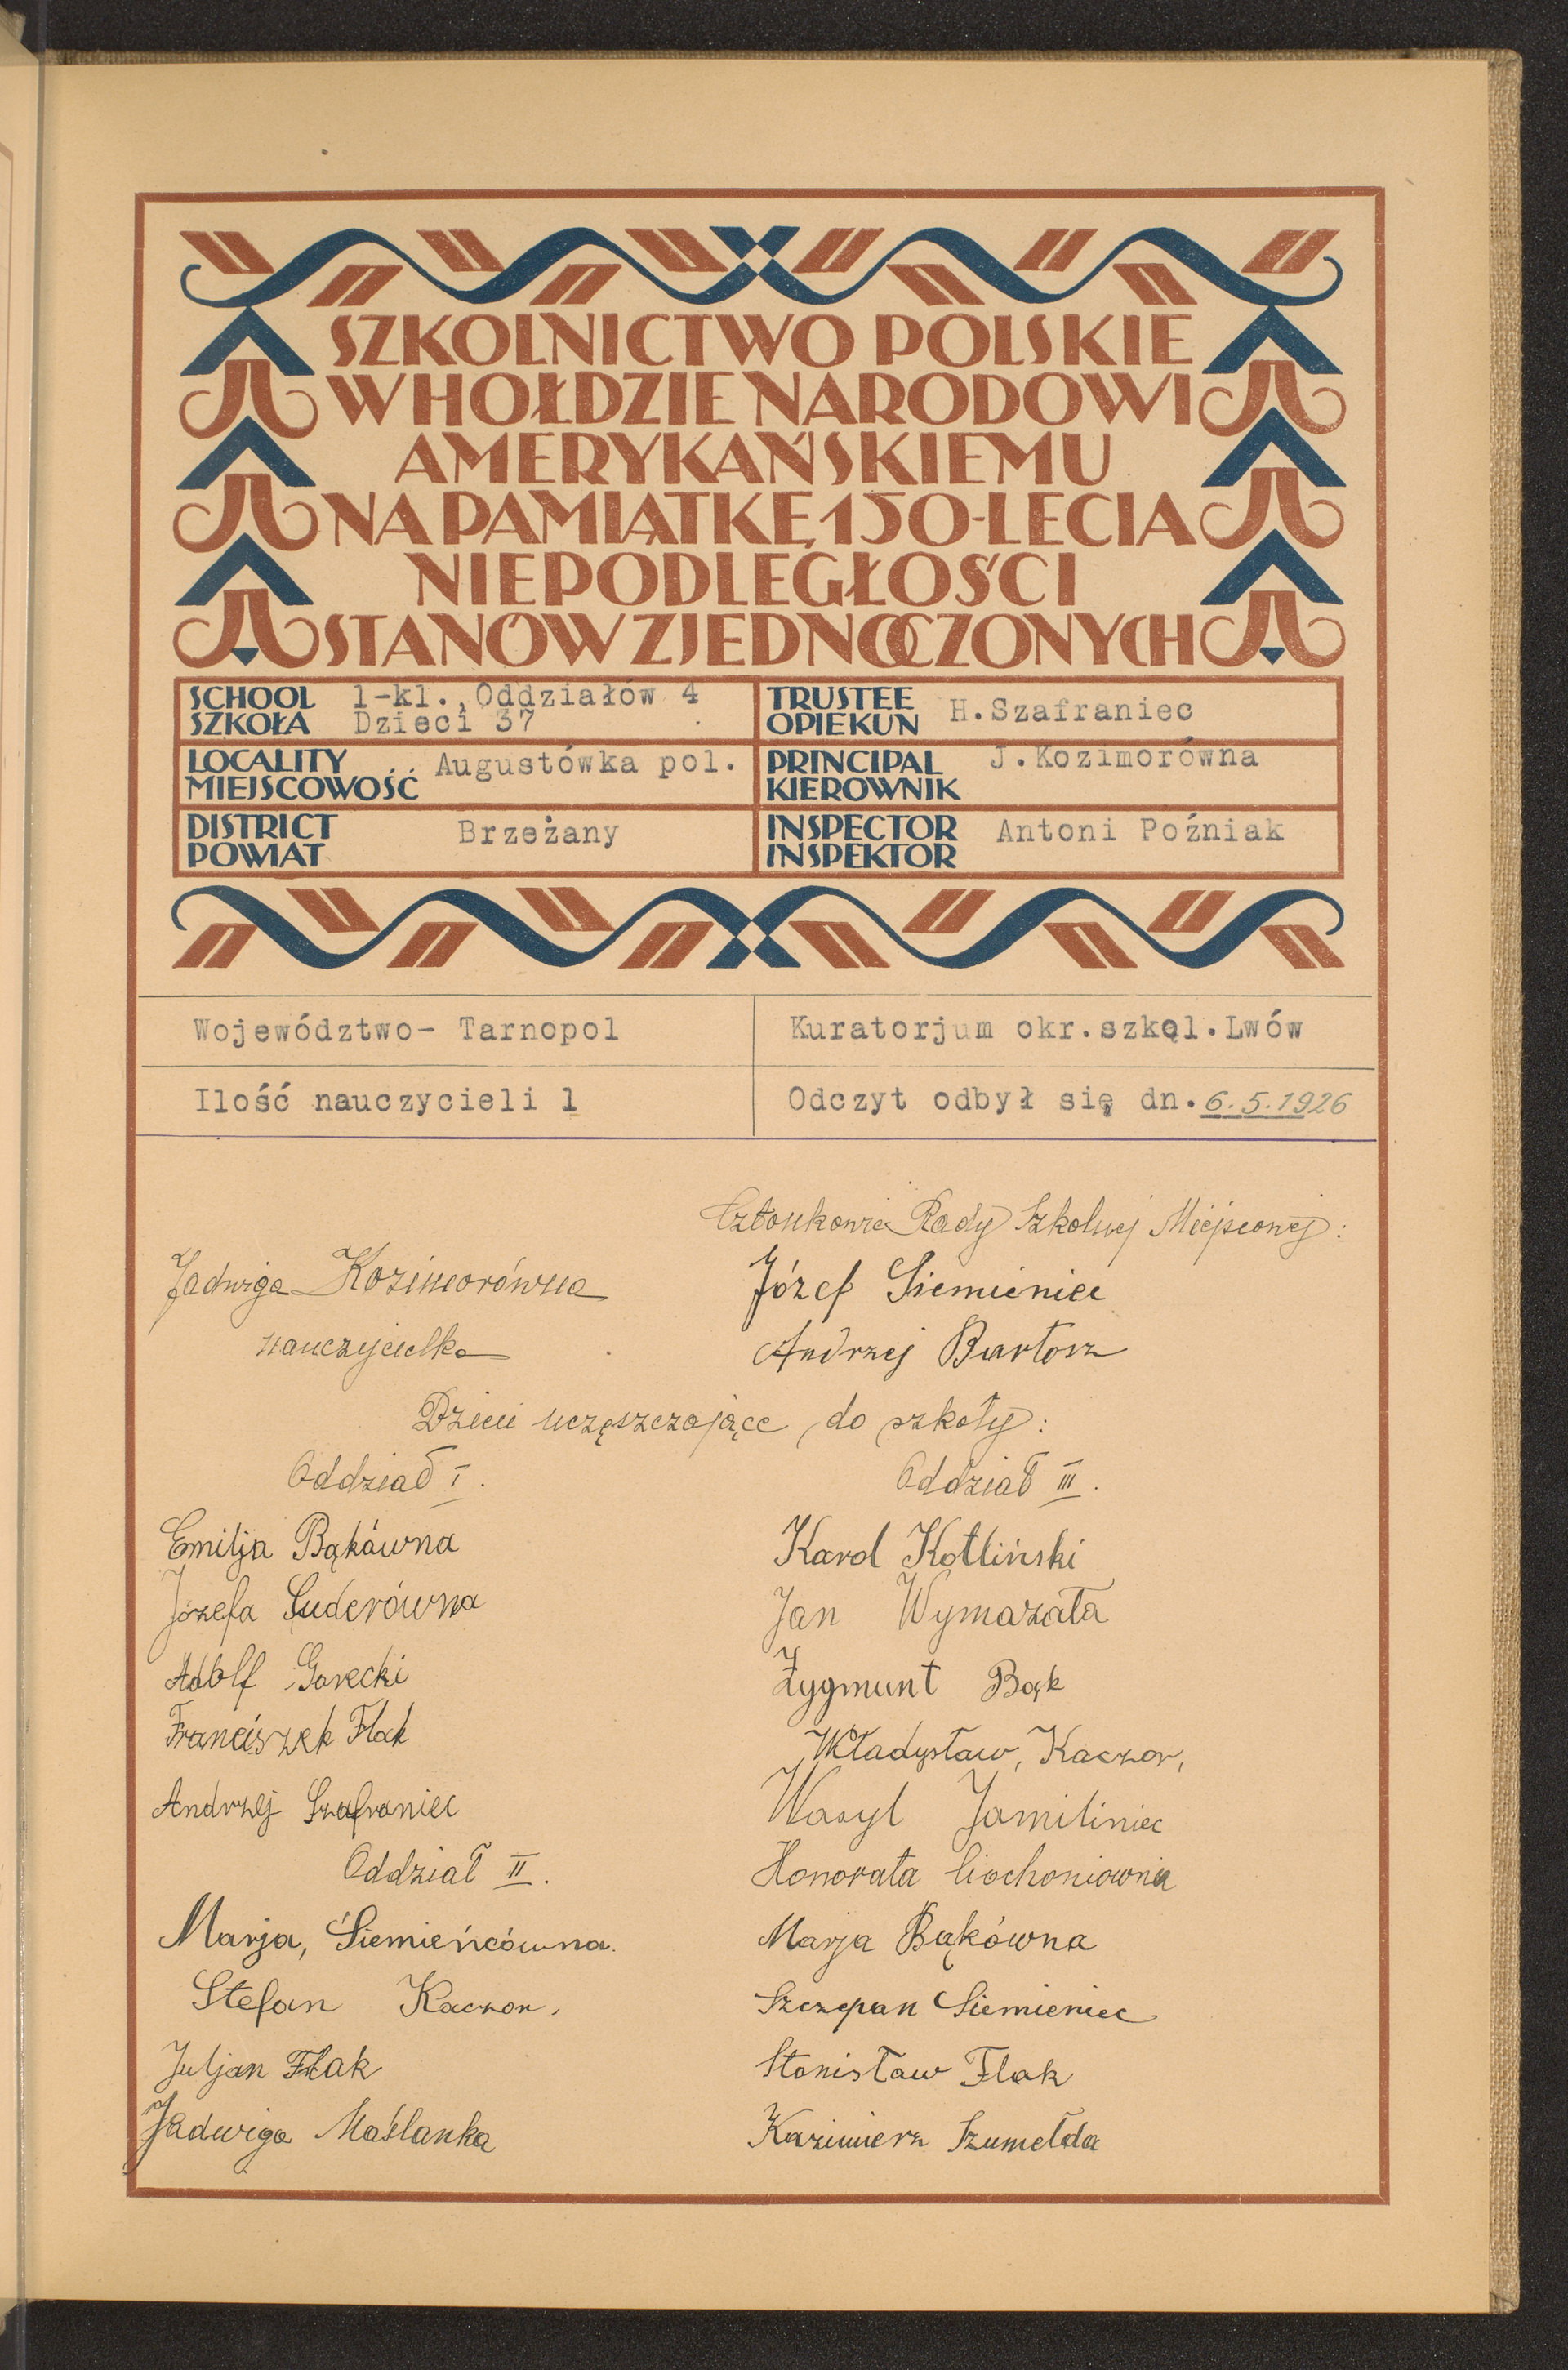 SZKOLNICTWO POLSKIE
W HOŁDZIE NARODOWI
AMERYKAŃSKIEMU
NA PAMIĄTKĘ 150-LECIA
NIEPODLEGŁOŚCI
STANÓW ZJEDNOCZONYCH
SCHOOL
SZKOŁA
1-kl., Oddziałów 4
Dzieci 37
TRUSTEE
OPIEKUN
H.Szafraniec
LOCALITY
MIEJSCOWOŚĆ
Augustówka pol.
PRINCIPAL
KIEROWNIK
J.Kozimorówna
DISTRICT
POWIAT
Brzeżany
INSPECTOR
INSPEKTOR
Antoni Poźniak
Województwo- Tarnopol
Kuratorjum okr.szkol.Lwów
Ilość nauczycieli 1
Odczyt odbył się dn. 6.5.1926
Członkowie Rady Szkolnej Miejscowej:
Jadwiga Kozimorówna
nauczycielka
Józef Siemieniec
Andrzej Bartosz
Dzieci uczęszczające do szkoły:
Oddział I.
Emilja Bąkówna
Józefa Suderówna
Adolf Gorecki
Franciszek Flak
Andrzej Szafraniec
Oddział II.
Marja, Siemieńcówna.
Stefan Kaczor,
Juljan Flak
Jadwiga Maślanka
Oddział III.
Karol Kotliński
Jan Wymazała
Zygmunt Bąk
Władysław, Kaczor,
Wasyl Jamiliniec
Honorata Ciochoniowna
Marja Bąkówna
Szczepan Siemieniec
Stanisław Flak
Kazimierz Szumełda